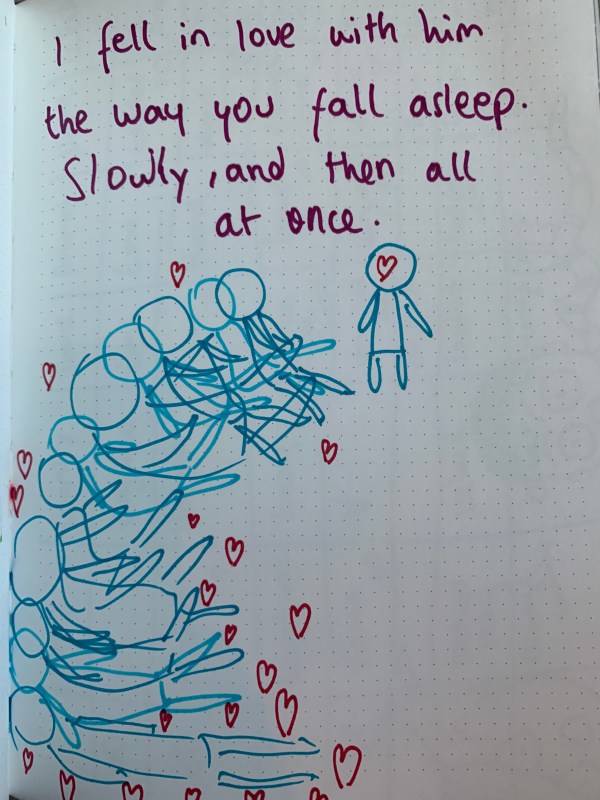 I fell in love with him
the way you fall asleep.
Slowly, and then all
at once.